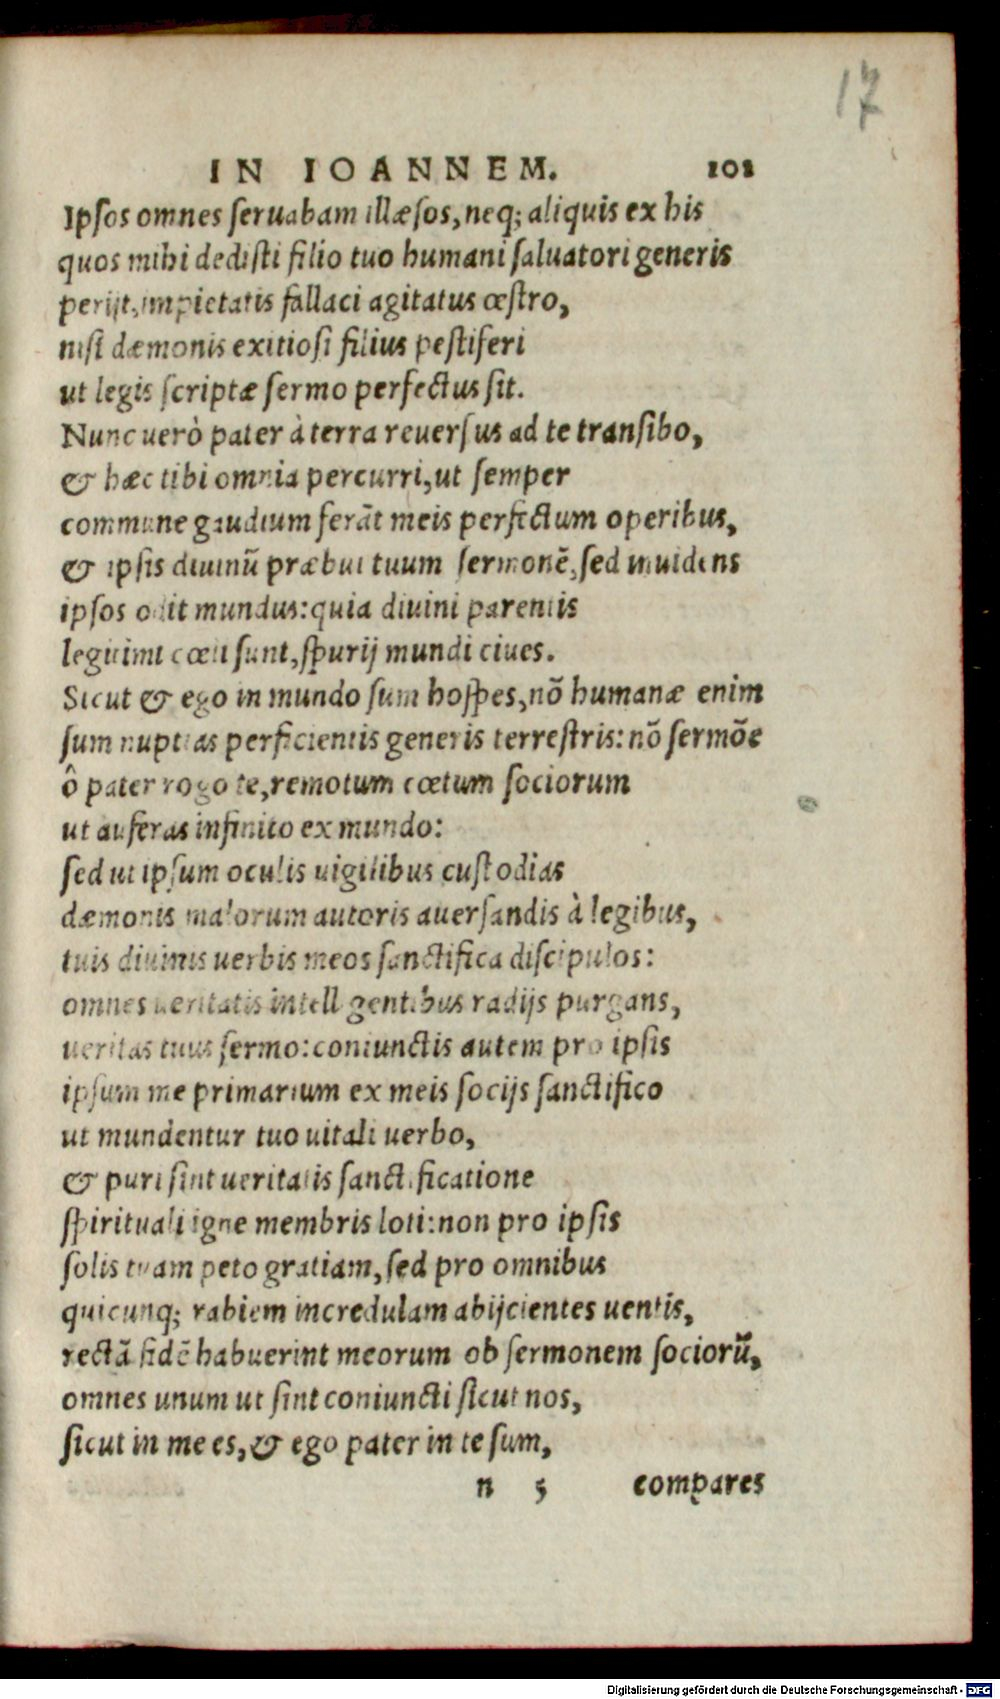 17
IN IOANNEM. 101
Ipſos omnes ſeruabam illæſos, neq; aliquis ex his
quos mihi dediſti filio tuo humani ſaluatori generis
perijt, impietatis fallaci agitatus œſtro,
niſi dæmonis exitioſi filius peſtiferi
ut legis ſcriptæ ſermo perfectus ſit.
Nunc uerò pater à terra reuerſus ad te tranſibo,
& hæc tibi omnia percurri, ut ſemper
commune gaudium ferāt meis perfectum operibus,
& ipſis diuinū præbui tuum ſermonē, ſed inuidens
ipſos odit mundus: quia diuini parentis
legitimi cœti ſunt, ſpurij mundi ciues.
Sicut & ego in mundo ſum hoſpes, nō humanæ enim
ſum nuptias perficientis generis terreſtris: nō ſermōe
ô pater rogo te, remotum cœtum ſociorum
ut auferas infinito ex mundo:
ſed ut ipſum oculis uigilibus cuſtodias
dæmonis malorum autoris auerſandis à legibus,
tuis diuinis uerbis meos ſanctifica diſcipulos:
omnes ueritatis intelligentibus radijs purgans,
ueritas tuus ſermo: coniunctis autem pro ipſis
ipſum me primarium ex meis ſocijs ſanctifico
ut mundentur tuo uitali uerbo,
& puri ſint ueritatis ſanctificatione
ſpirituali igne membris loti: non pro ipſis
ſolis tuam peto gratiam, ſed pro omnibus
quicunq; rabiem incredulam abijcientes uentis,
rectā fidē habuerint meorum ob ſermonem ſociorū,
omnes unum ut ſint coniuncti ſicut nos,
ſicut in me es, & ego pater in te ſum,
n 5 compares
Digitalisierung gefördert durch die Deutsche Forschungsgemeinschaft - DFG